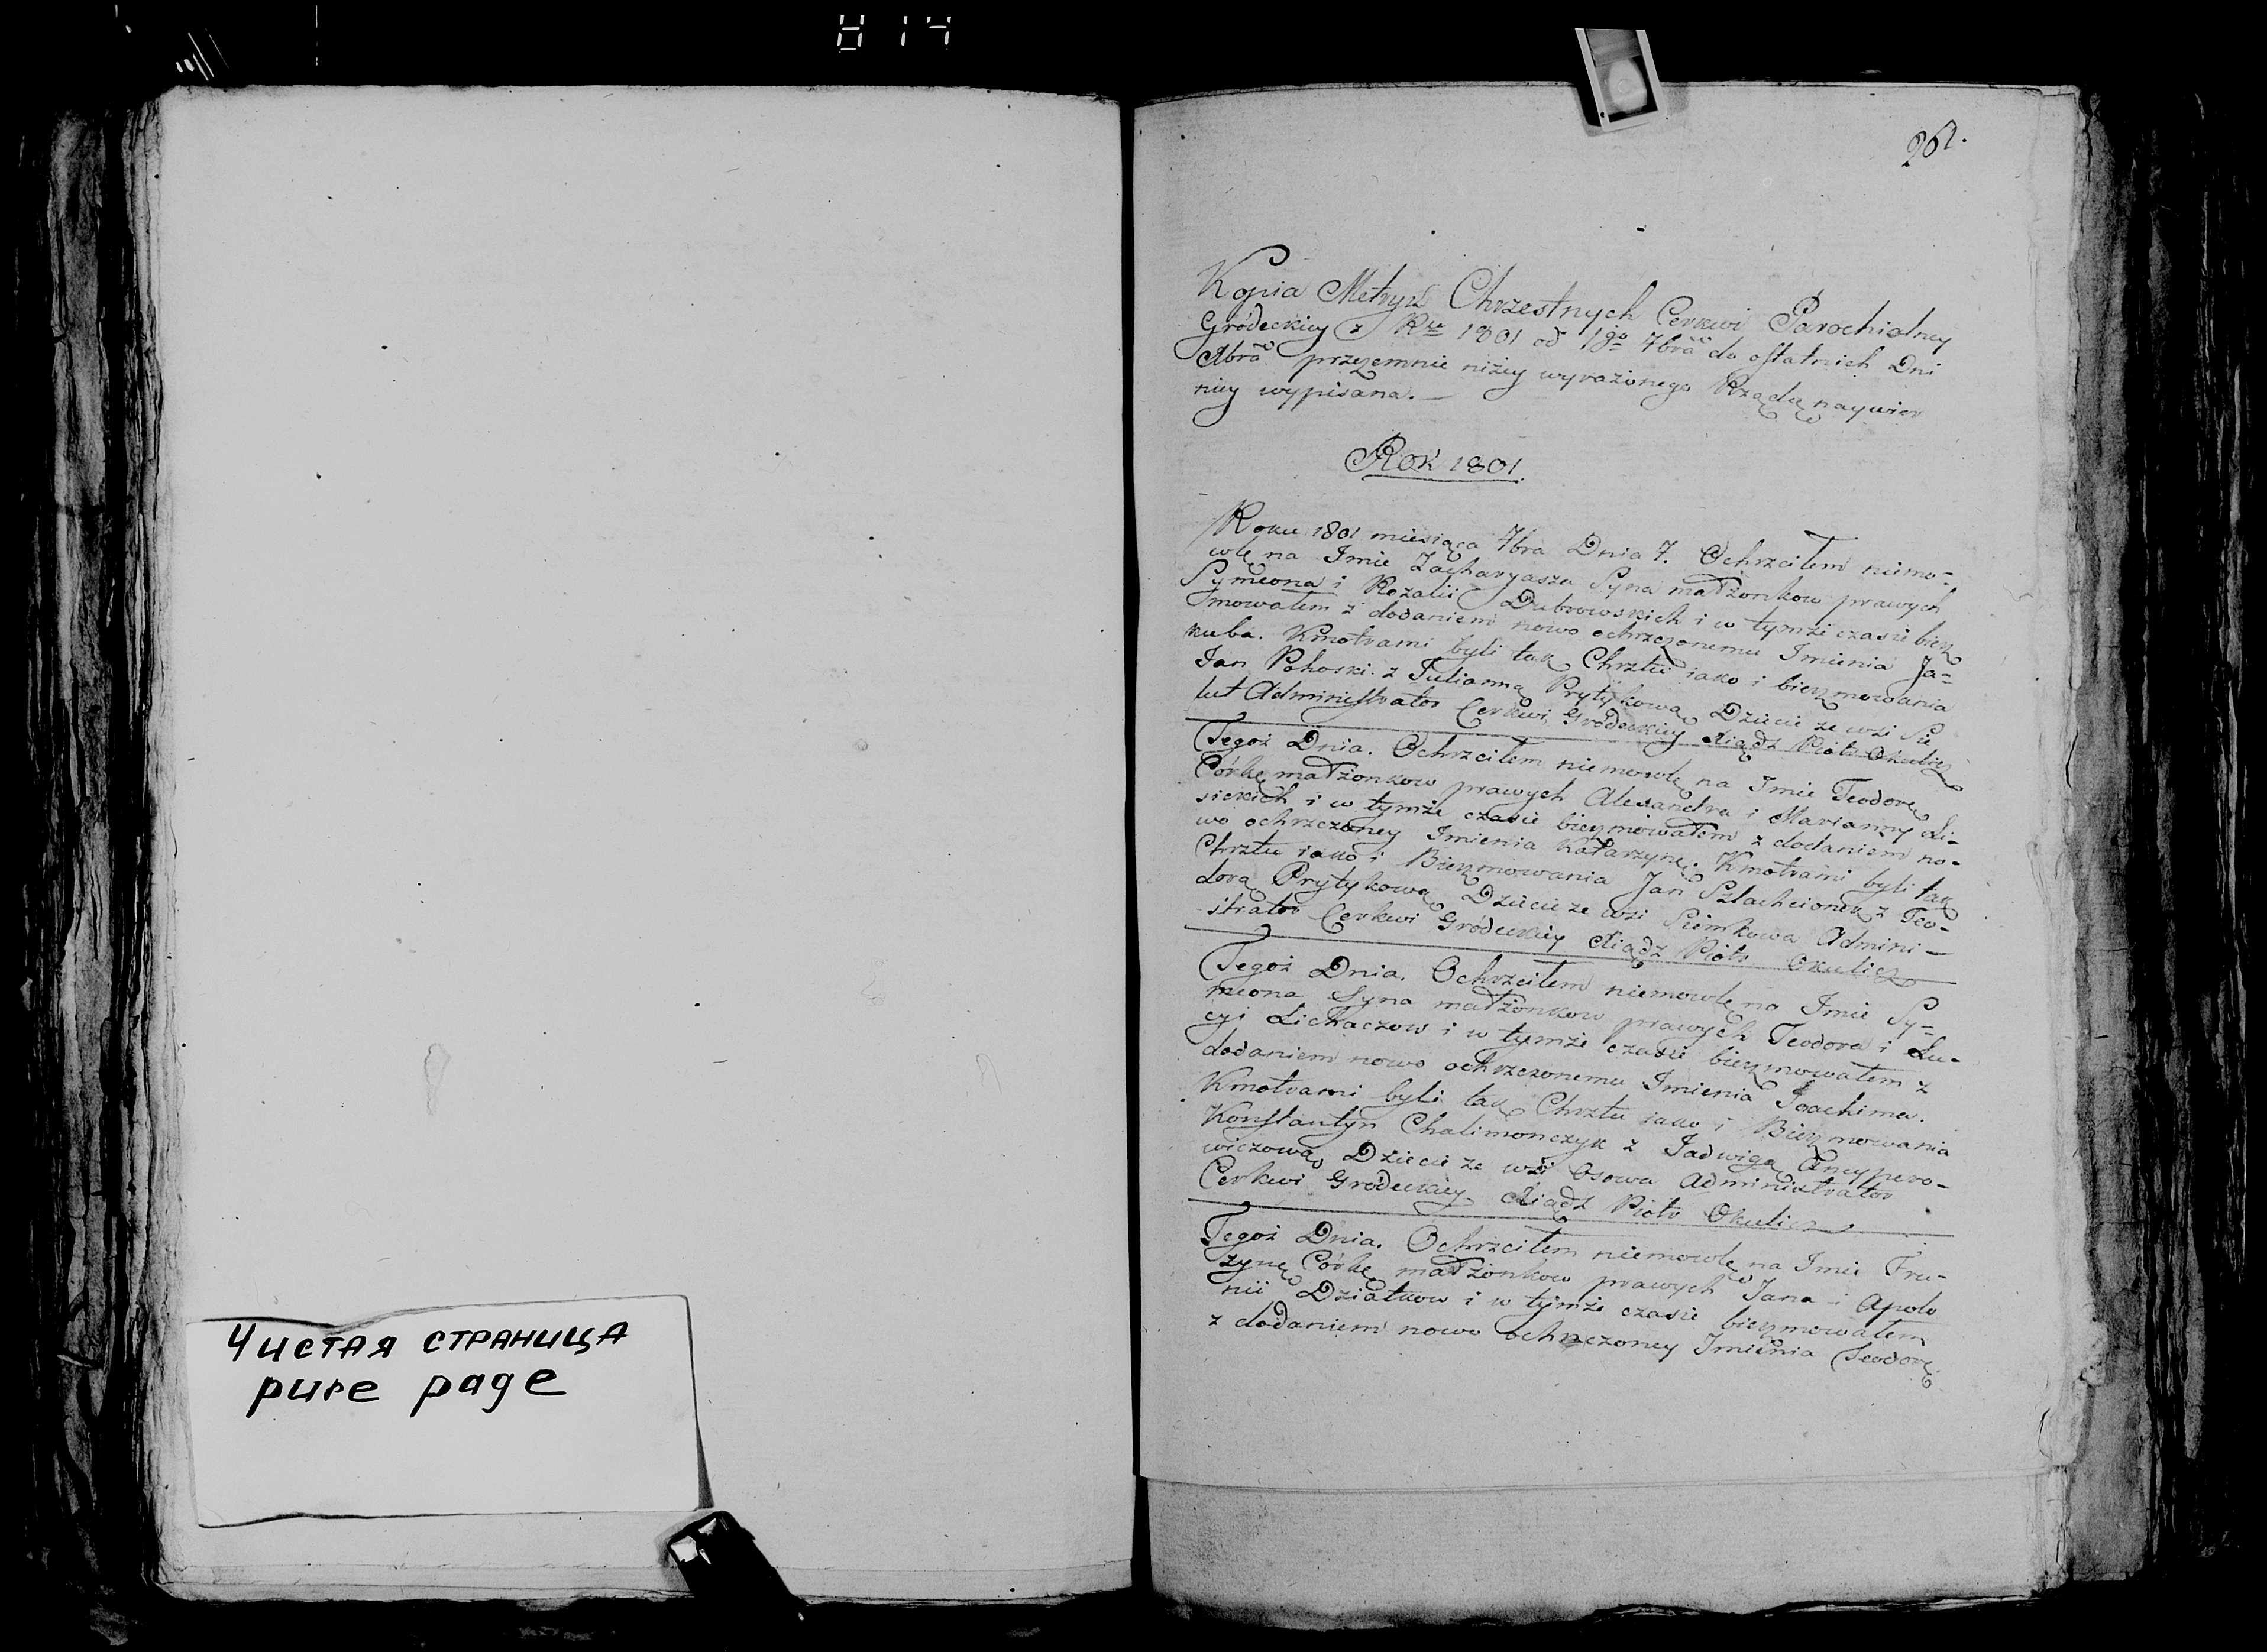 814
Чистая страница
pure page
261.
Kopia Metryk Chrzestnych Cerkwi Parochialney
Gródeckiey z Rku 1801 od 1go 7bra do ostatnich Dni
Xbra przezemnie niżey wyrażonego Rządu naywier
niey wypisana.
Rok 1801
Roku 1801 miesiąca 7bra Dnia 7. Ochrzciłem niemo-
wlę na Imie Zacharyasza Syna małżonkow prawych
Symeona i Rozalii Dubrowskich i w tymże czasie bierz
mowałem z dodaniem nowo ochrzczonemu Imienia Ja-
kuba. Kmotrami byli tak Chrztu iako i bierzmowania
Jan Pohoski z Julianną Prytykową Dziecie ze wsi Sie
lut Administrator Cerkwi Gródeckiey Xiądz Piotr Okulicz
Tegoż Dnia. Ochrzciłem niemowlę na Imie Teodorę
Córkę małżonkow prawych Alexandra i Marianny Li-
sickich i w tymże czasie bierzmowałem z dodaniem no-
wo ochrzczoney Imienia Katarzynę. Kmotrami byli tak
Chrztu iako i Bierzmowania Jan Szlachcionek z Teo-
dorą Prytykową Dziecie ze wsi Siemkowa Admini-
strator Cerkwi Gródeckiey Xiądz Piotr Okulicz
Tegoż Dnia. Ochrzciłem niemowlę na Imie Sy-
meona Syna małżonkow prawych Teodora i Łu-
cyi Lichaczow i w tymże czasie bierzmowałem z
dodaniem nowo ochrzczonemu Imienia Joachima.
Kmotrami byli tak Chrztu iako i Bierzmowania
Konstantyn Chalimonczyk z Jadwigą Ancypero-
wiczową Dziecie ze wsi Osowa Administrator
Cerkwi Gródeckiey Xiądz Piotr Okulicz
Tegoż Dnia. Ochrzciłem niemowlę na Imie Fru-
zynę Córkę małżonkow prawych Jana i Apolo
nii Działkow i w tymże czasie bierzmowałem
z dodaniem nowo ochrzczoney Imienia Teodorę